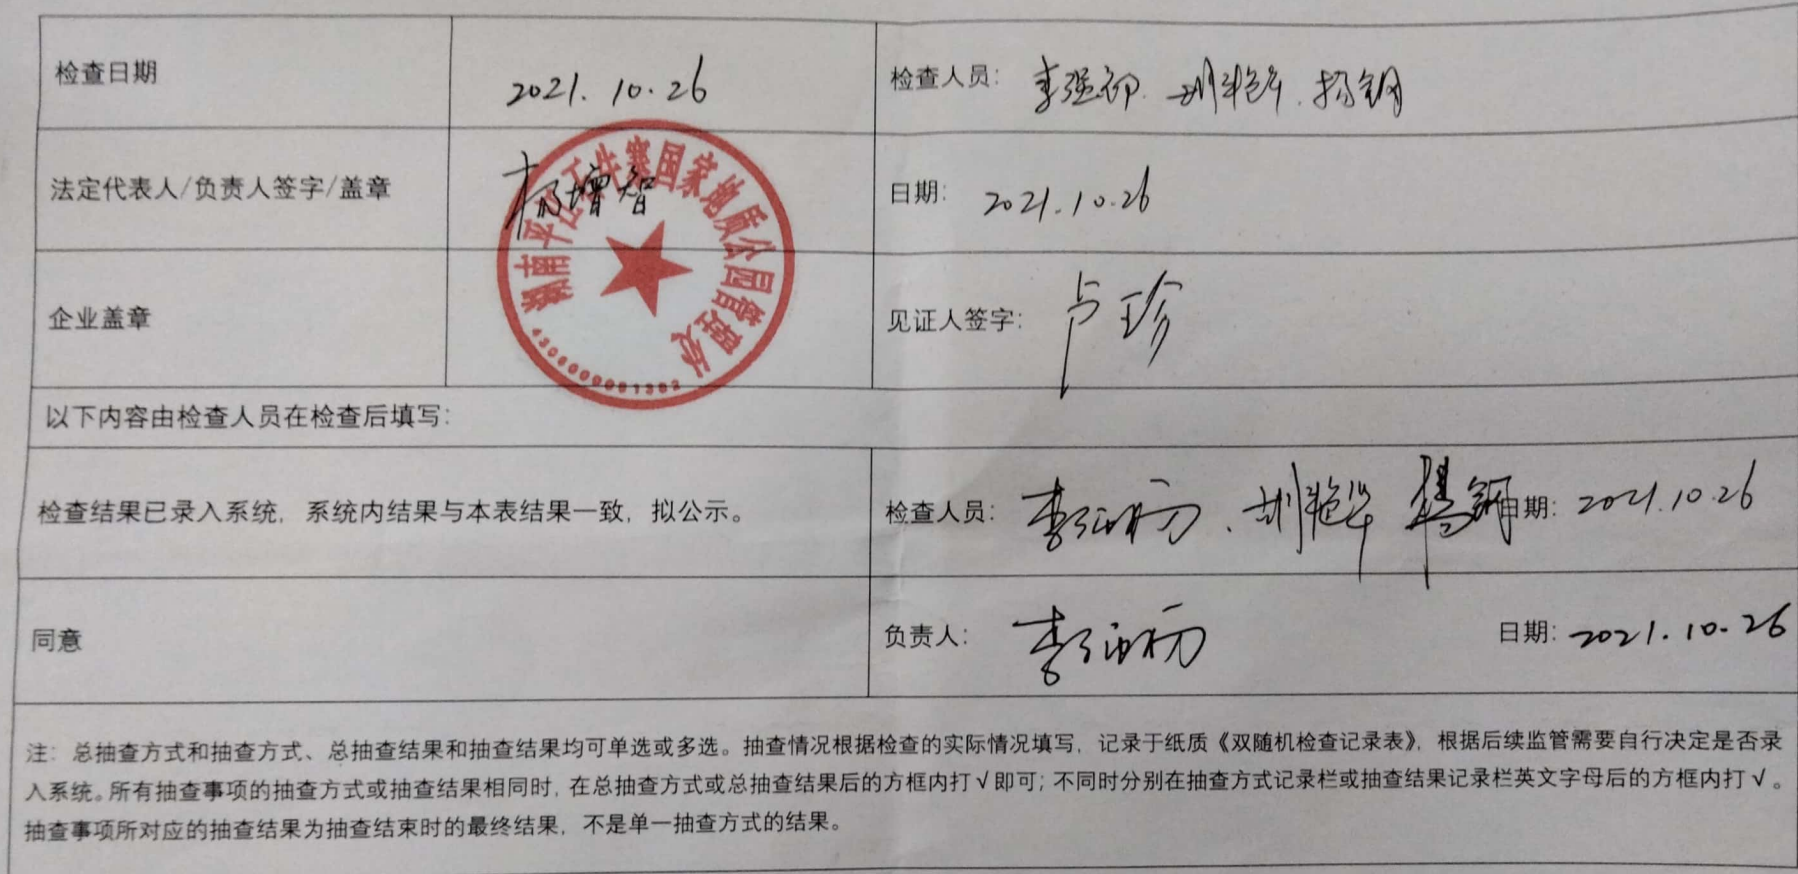 检查日期
2021.10.26
检查人员：
法定代表人/负责人签字/盖章
杨增智
日期：2021.10.26
企业盖章
湖南平江石牛寨国家地质公园管理处
见证人签字：卢珍
以下内容由检查人员在检查后填写：
检查结果已录入系统，系统内结果与本表结果一致，拟公示。
检查人员：
日期：2021.10.26
同意
负责人：
日期：2021.10.26
注：总抽查方式和抽查方式、总抽查结果和抽查结果均可单选或多选。抽查情况根据检查的实际情况填写，记录于纸质《双随机检查记录表》，根据后续监管需要自行决定是否录
入系统。所有抽查事项的抽查方式或抽查结果相同时，在总抽查方式或总抽查结果后的方框内打√即可；不同时分别在抽查方式记录栏或抽查结果记录栏英文字母后的方框内打√。
抽查事项所对应的抽查结果为抽查结束时的最终结果，不是单一抽查方式的结果。